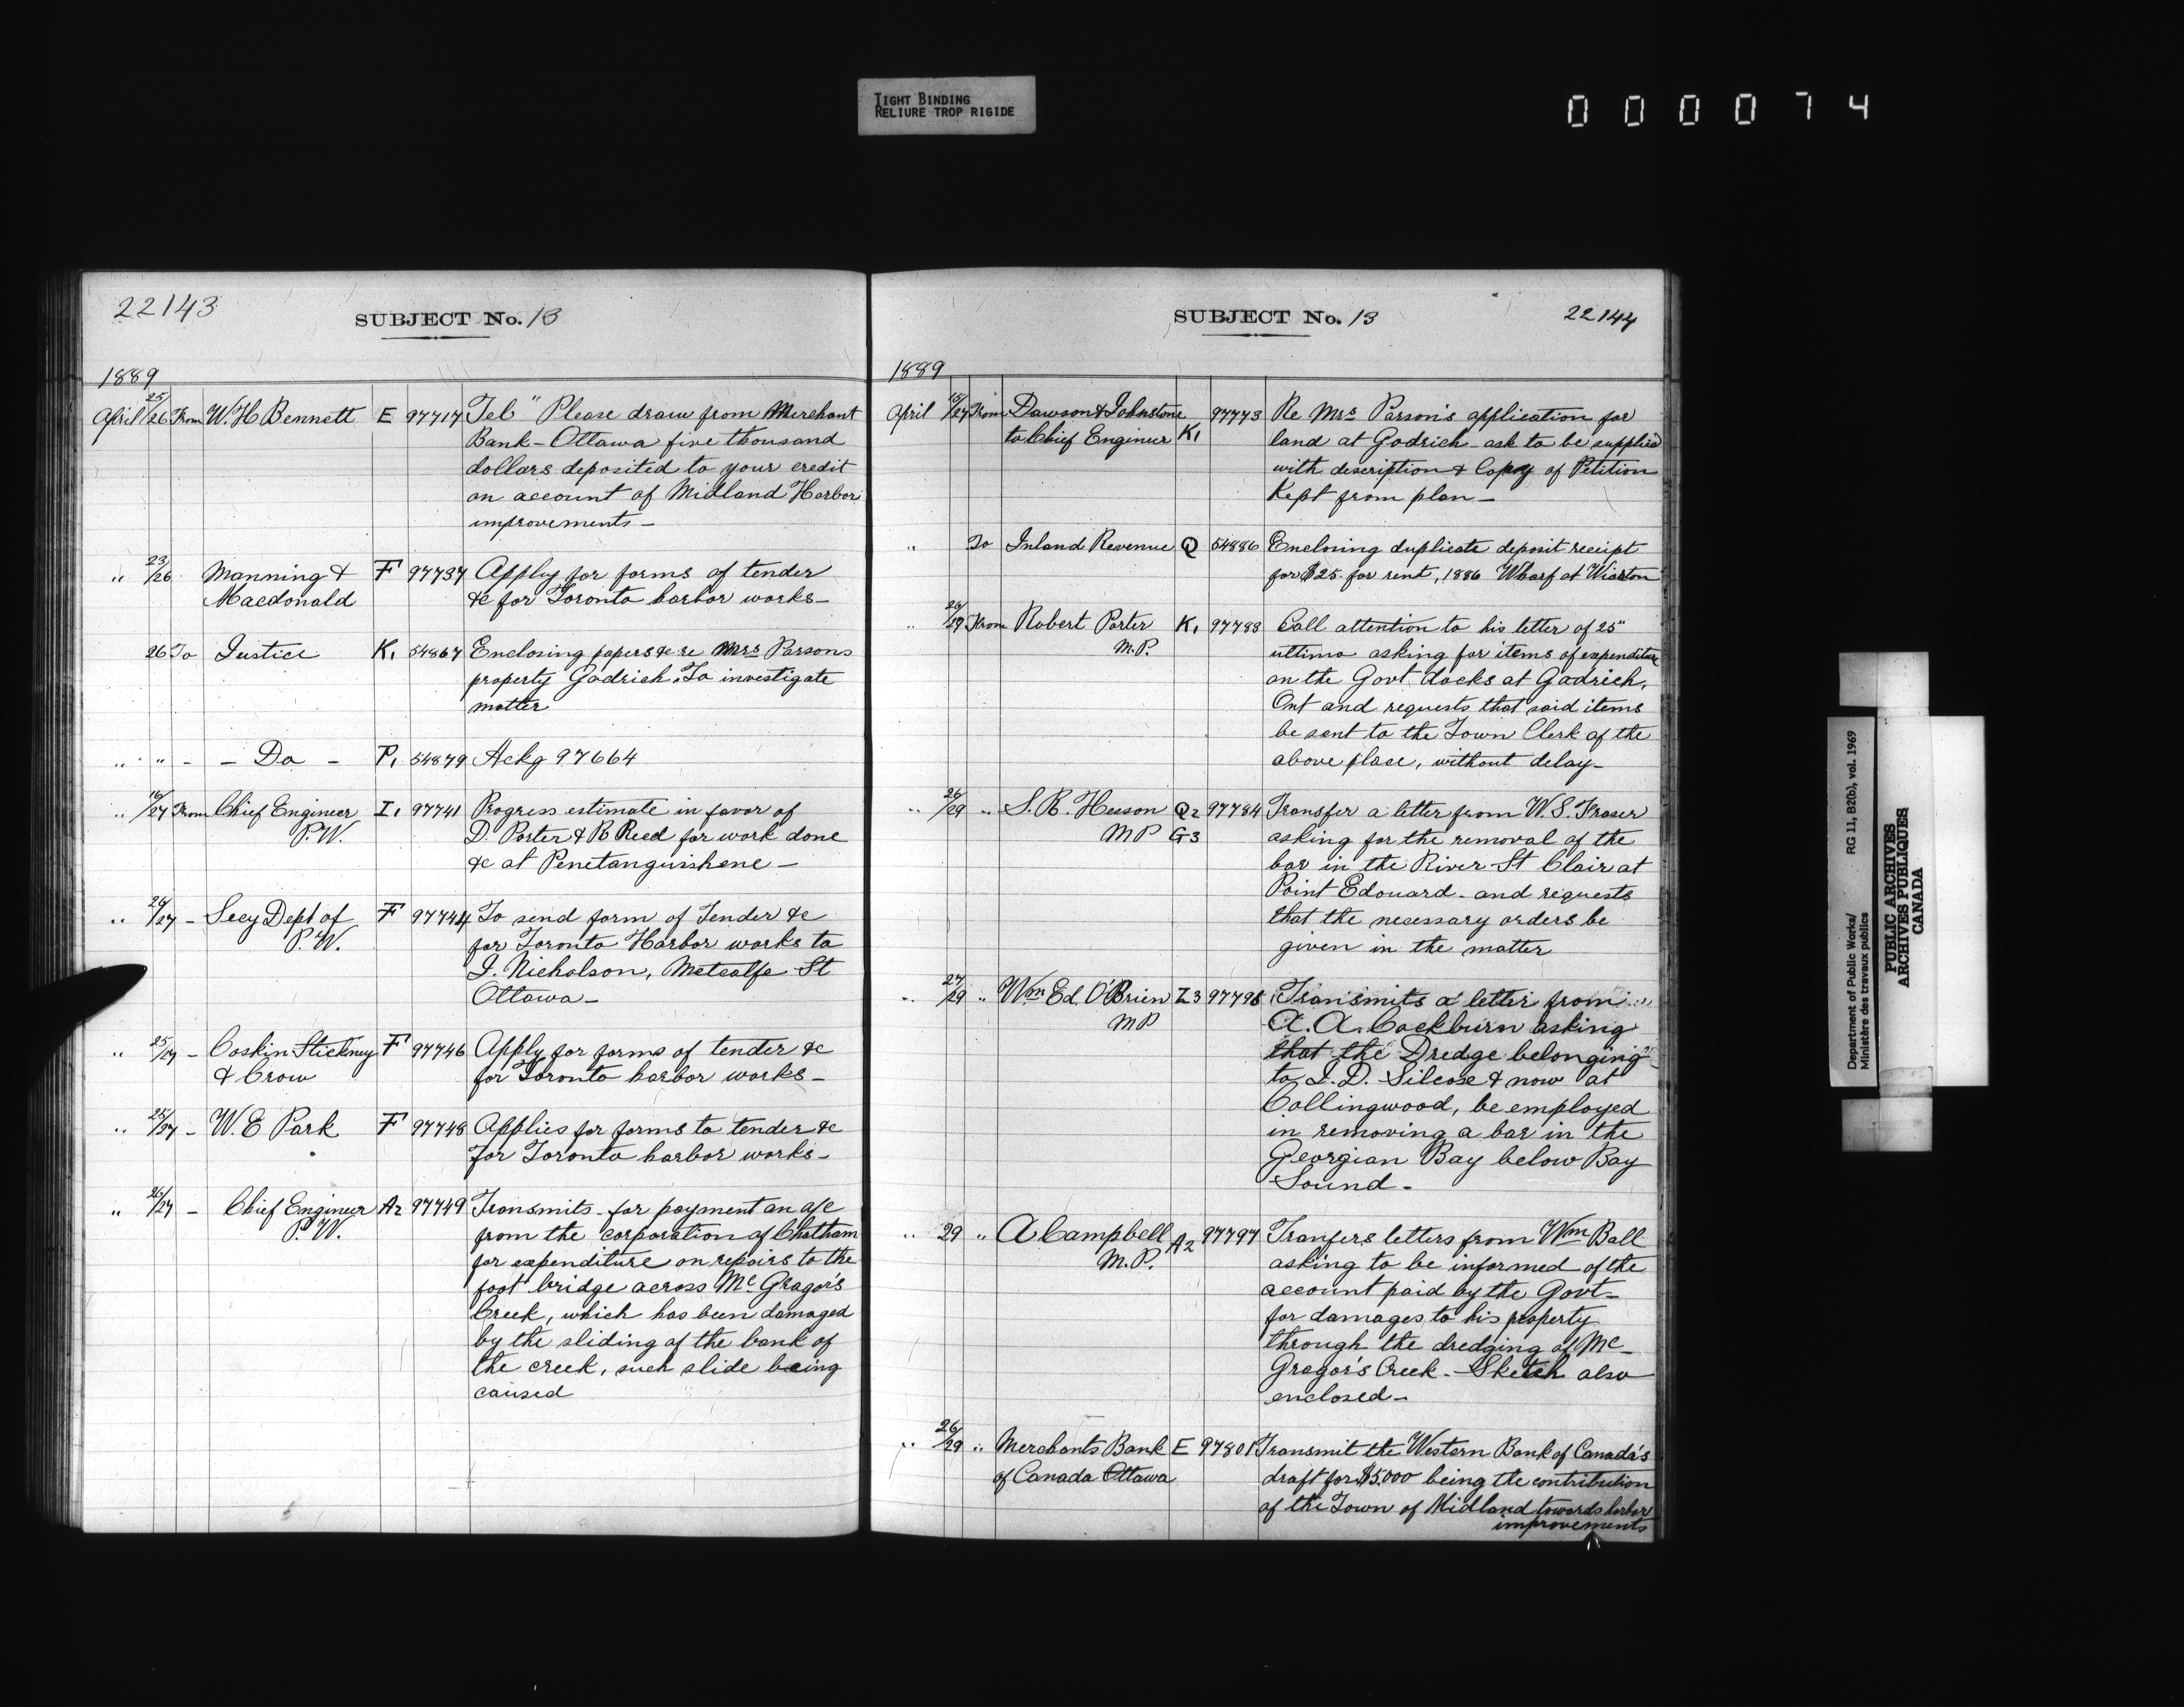 TIGHT BINDING
RELIURE TROP RIGIDE
000074
22143
SUBJECT No. 13
1889
April 25/26 From W. H Bennett E 97717 Tel " Please draw from Merchant
Bank - Ottawa five thousand
dollars deposited to your credit
on account of Midland Harbor
improvements -
" 23/26 Manning & F 97737 Apply for forms of tender
Macdonald &c for Toronto harbor works -
26 To Justice K1 54867 Enclosing papers &c re Mrs Parsons
property Godrich. To investigate
matter
" " - - Do - P1 54879 Ackg 97664
" 16/27 From Chief Engineer I1 97741 Progress estimate in favor of
P. W. D. Porter & R Reed for work done
&c at Penetanguishene -
" 26/27 - Secy Dept of F 97744 To send form of Tender &c
P. W. for Toronto Harbor works to
J. Nicholson, Metcalfe St
Ottawa -
" 25/27 - Coskin Stickney F 97746 Apply for forms of tender &c
& Crow for Toronto harbor works -
" 25/27 - W. E Park F 97748 Applies for forms to tender &c
for Toronto harbor works -
" 26/27 - Chief Engineer A2 97749 Transmits for payment an a/c
P. W. from the corporation of Chatham
for expenditure on repairs to the
foot bridge across Mc Gregor's
Creek, which has been damaged
by the sliding of the bank of
the creek, such slide being
caused
SUBJECT No. 13
22144
1889
April /27 From Dawson & Johnstone 97773 Re Mrs Parson's application for
to Chief Engineer K1 land at Godrich - ask to be supplied
with description & Copy of Petition
Kept from plan -
" To Inland Revenue Q 54886 Enclosing duplicate deposit receipt
for $25. for rent, 1886 Wharf at Wiarton
" 26/29 From Robert Porter K1 97783 Call attention to his letter of 25"
M.P. ultimo asking for items of expenditure
on the Govt docks at Godrich,
Ont and requests that said items
be sent to the Town Clerk of the
above place, without delay -
" 26/29 " S. R. Hesson Q2 97784 Transfer a letter from W. S. Fraser
M P G3 asking for the removal of the
bar in the River St Clair at
Point Edouard - and requests
that the necessary orders be
given in the matter
" 27/29 " Wm Ed. O'Brien Z3 97795 Transmits a letter from
M P A. A. Cockburn asking
that the Dredge belonging
to J. D. Silcose & now at
Collingwood, be employed
in removing a bar in the
Georgian Bay below Bay
Sound -
" 29 " A Campbell A2 97797 Tranfers letters from Wm Ball
M. P. asking to be informed of the
account paid by the Govt -
for damages to his property
through the dredging of Mc -
Gregor's Creek - Sketch also
enclosed -
" 26/29 " Merchants Bank E 97801 Transmit the Western Bank of Canada's
of Canada Ottawa draft for $5.000 being the contribution
of the Town of Midland towards harbor
improvements
Department of Public Works/
Ministère des travaux publics
RG 11, B2(b), vol. 1969
PUBLIC ARCHIVES
ARCHIVES PUBLIQUES
CANADA